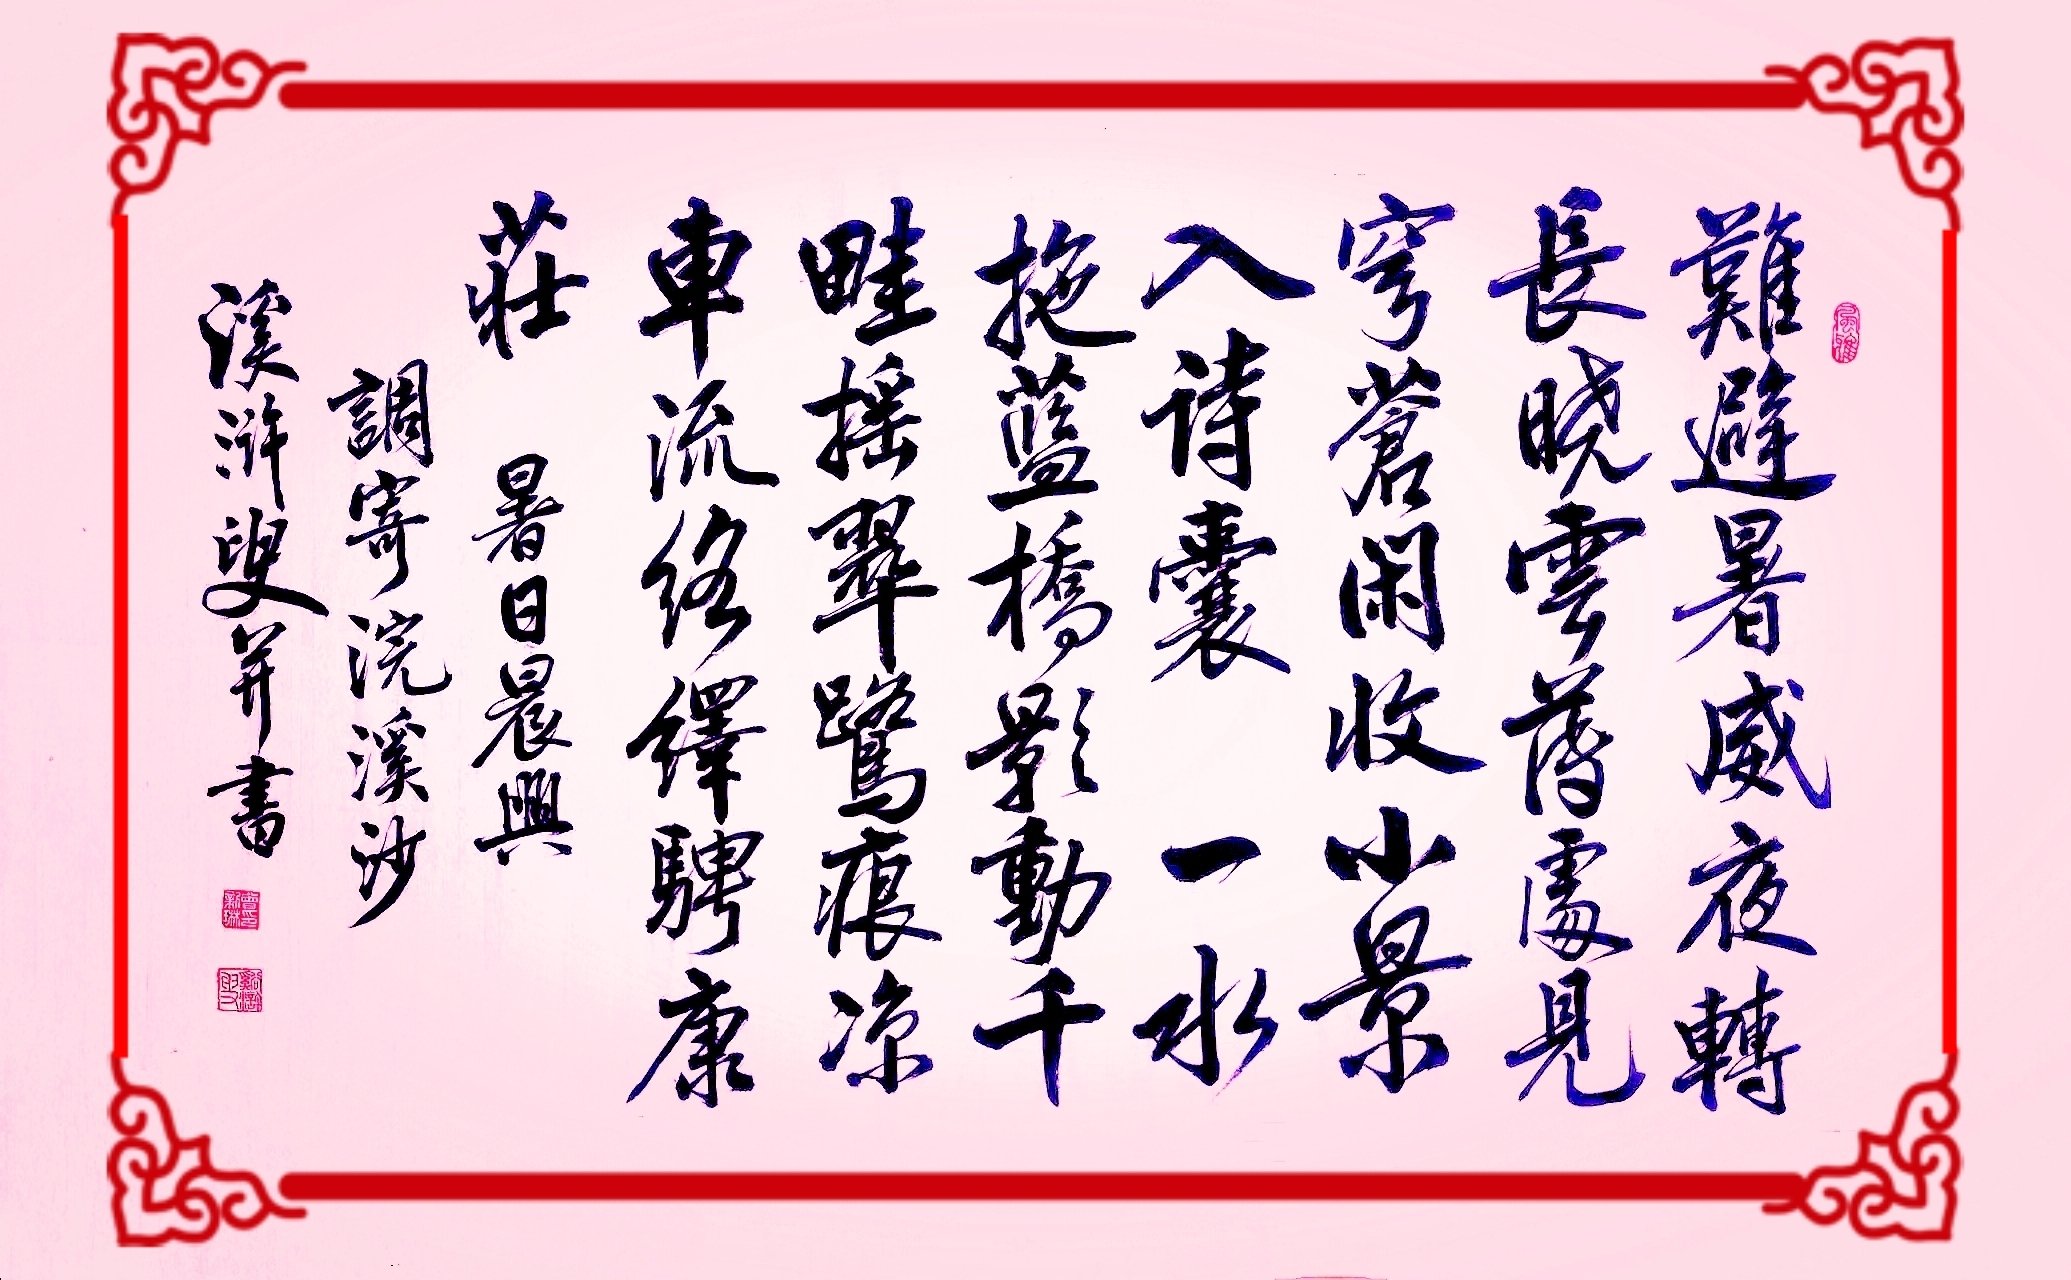 難避暑威夜轉
長曉雲薄處見
穹蒼閑收小景
入诗囊 一水
拖藍橋影動千
畦摇翠鷺痕涼
車流络繹騁康
莊 暑日晨興
調寄浣溪沙
溪滸叟并書